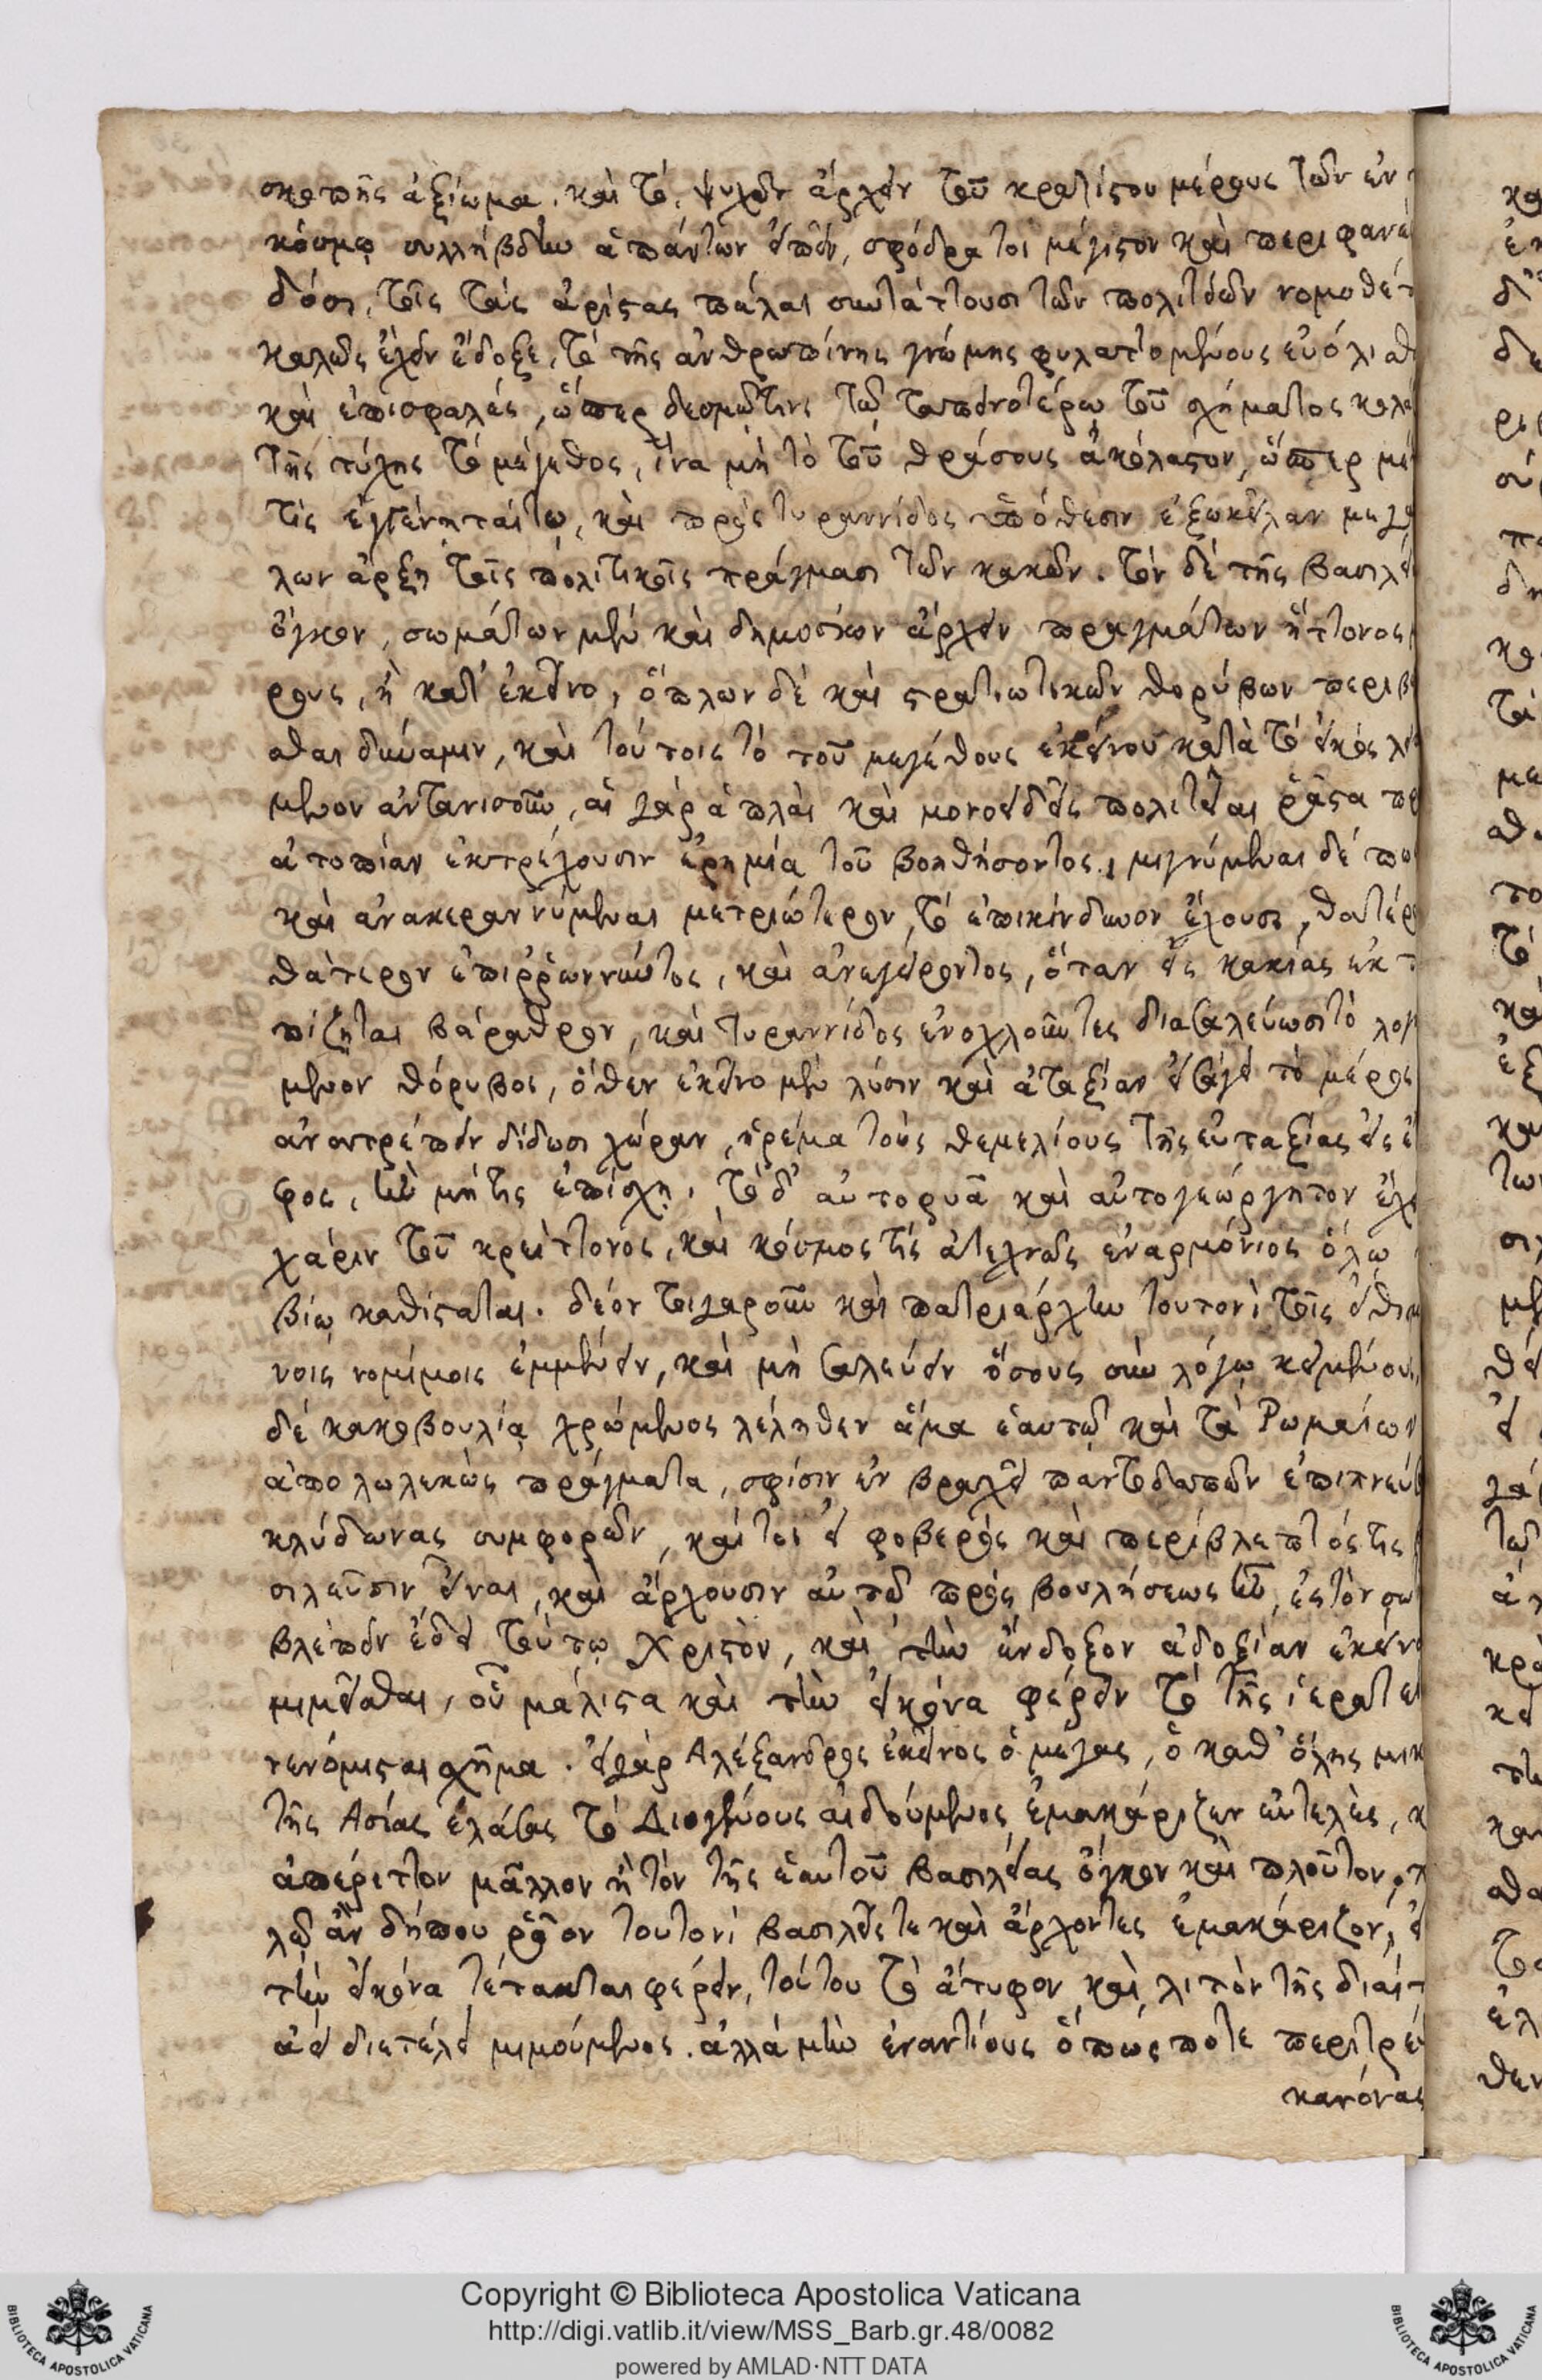 σκοπῆς ἀξίωμα, καὶ τὸ ψυχῶν ἄρχειν τοῦ κρατίστου μέρους τῶν ἐν
κόσμῳ συλλήβδην ἁπάντων εἰπεῖν, σφόδρα τοι μέγιστον καὶ περιφανὲ
δόσι, τοῖς τὰς ἀρίστας πάλαι συντάττουσι τῶν πολιτειῶν νομοθέτ
καλῶς ἔχειν ἔδοξε, τὸ τῆς ἀνθρωπίνης γνώμης φυλαττομένους εὐόλισθ
καὶ ἐπισφαλές, ὥσπερ δεσμῷ τινι τῷ ταπεινοτέρῳ τοῦ σχήματος κολά
τῆς τύχης τὸ μέγεθος, ἵνα μὴ τὸ τοῦ θράσους ἀκόλαστον, ὥσπερ μέ
τις ἐγγένηται τῳ, καὶ πρὸς τυραννίδος ὑπόθεσιν ἐξωκεῖλαν μεγά
λων ἄρξῃ τοῖς πολιτικοῖς πράγμασι τῶν κακῶν. τὸν δὲ τῆς βασιλεί
ὄγκον, σωμάτων μὲν καὶ δημοσίων ἄρχειν πραγμάτων ἥττονος
ρους, ἢ κατ' ἐκεῖνο, ὅπλων δὲ καὶ στρατιωτικῶν θορύβων περιβ
σθαι δύναμιν, καὶ τούτοις τὸ τοῦ μεγέθους ἐκείνου κατὰ τὸ εἰκὸς λει
μενον ἀντανισοῦν, αἱ γὰρ ἁπλαῖ καὶ μονοειδεῖς πολιτεῖαι ῥᾷστα πρ
ἀτοπίαν ἐκτρέχουσιν ἐρημίᾳ τοῦ βοηθήσοντος, μιγνύμεναι δέ πως
καὶ ἀνακεραννύμεναι μετριώτερον τὸ ἐπικίνδυνον ἔχουσι, θατέρου
θάτερον ἐπιρρωννύντος, καὶ ἀνεγείροντος, ὅταν εἰς κακίας ἐκτ
πίζηται βάραθρον, καὶ τυραννίδος ἐνοχλοῦντες διασαλεύωσι τὸ λογ
μενον θόρυβοι, ὅθεν ἐκεῖνο μὲν λύσιν καὶ ἀταξίαν εἰσάγει τὸ μέρος
ἀνατρέπειν δίδωσι χώραν, ἠρέμα τοὺς θεμελίους τῆς εὐταξίας εἰς ἔ
φος, ἢν μή τις ἐπίσχῃ, τὸ δ' αὐτοφυᾶ καὶ αὐτογεώργητον ἔχε
χάριν τοῦ κρείττονος, καὶ κόσμος τις ἀτεχνῶς ἐναρμόνιος ὅλῳ
βίῳ καθίσταται. δέον τοιγαροῦν καὶ πατριάρχην τουτονὶ τοῖς εἰθισμ
νοις νομίμοις ἐμμένειν, καὶ μὴ σαλεύειν ὅσους σὺν λόγῳ κειμένους,
δὲ κακοβουλίᾳ χρώμενος λέληθεν ἅμα ἑαυτῷ καὶ τὰ Ρωμαίων
ἀπολωλεκὼς πράγματα, σφίσιν ἐν βραχεῖ παντοδαπῶν ἐπιπνεύσ
κλύδωνας συμφορῶν, καί τοι εἰ φοβερὸς καὶ περίβλεπτός τις
σιλεῦσιν εἶναι, καὶ ἄρχουσιν αὐτῷ πρὸς βουλήσεως ἦν, ἐς τὸν σω
βλέπειν ἔδει τούτῳ Χριστὸν, καὶ τὴν ἔνδοξον ἀδοξίαν ἐκείνο
μιμεῖσθαι, οὗ μάλιστα καὶ τὴν εἰκόνα φέρειν τὸ τῆς ἱερατεί
νενόμισται σχῆμα. εἰ γὰρ Αλέξανδρος ἐκεῖνος ὁ μέγας, ὁ καθ' ὅλης μικ
τῆς Ασίας ἐλάσας τὸ Διογένους αἰδούμενος ἐμακάριζεν εὐτελὲς, κ
ἀπέριττον μᾶλλον ἢ τὸν τῆς ἑαυτοῦ βασιλείας ὄγκον καὶ πλοῦτον, π
λῷ ἂν δήπου ῥᾷον τουτονὶ βασιλεῖς τε καὶ ἄρχοντες ἐμακάριζον, εἰ
τὴν εἰκόνα τέτακται φέρειν, τούτου τὸ ἄτυφον καὶ λιτὸν τῆς διαίτ
ἀεὶ διετέλει μιμούμενος. ἀλλὰ μὴν ἐναντίους ὅπως ποτε περιτρέ
κανόνας
Copyright © Biblioteca Apostolica Vaticana
http://digi.vatlib.it/view/MSS_Barb.gr.48/0082
powered by AMLAD·NTT DATA
BIBLIOTECA APOSTOLICA VATICANA
BIBLIOTECA APOSTOLICA VATICANA